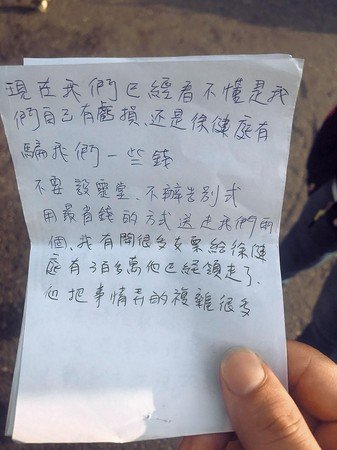 現在我們已經看不懂是我
們自己有虧損、還是徐健庭有
騙我們一些錢
不要設靈堂、不辦告別式
用最省錢的方式送走我們兩
個、我有開很多支票給徐健
庭有3百多萬他已經領走了、
他把事情弄的複雜很多